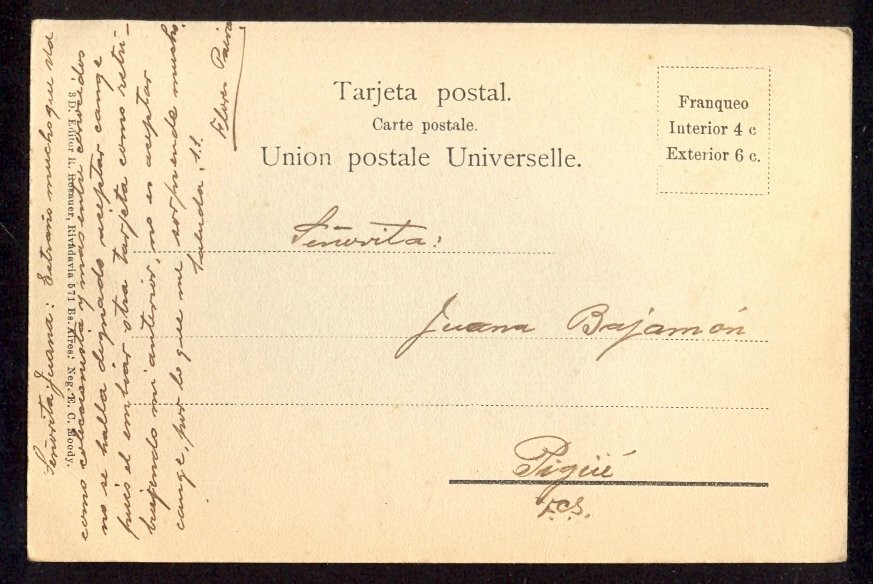 Tarjeta postal.
Carte postale.
Union postale Universelle.
Franqueo
Interior 4 c
Exterior 6 c.
Señorita:
Juana Bajamón
Pigüé
F.C.S.
Señorita Juana: Estraño mucho que Ud
como colecionista y mas entre conocidos
no se halla dignado aceptar cange
pués el embiar otra tarjeta como retri-
bujendo mi anterior, no es aceptar
cange, por lo que me sorprende mucho
Saluda, S.S.
3 D. Editor R. Rosauer, Rivadavia 571 Bs. Aires: Neg. E. C. Moody.